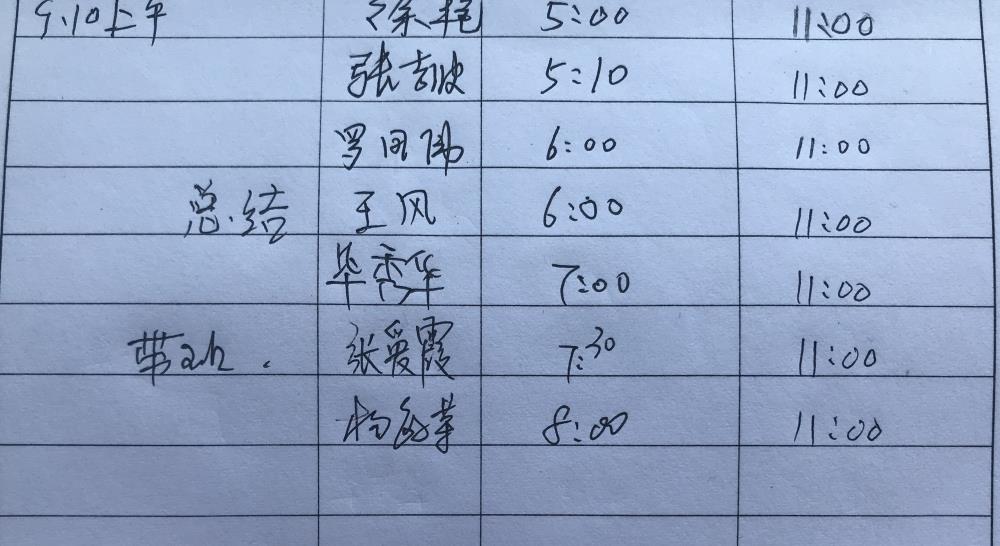 9.10上午 徐艳 5:00 11:00
张吉波 5:10 11:00
罗同伟 6:00 11:00
总结 王风 6:00 11:00
毕秀华 7:00 11:00
带2h. 张爱霞 7:30 11:00
杨 8:00 11:00